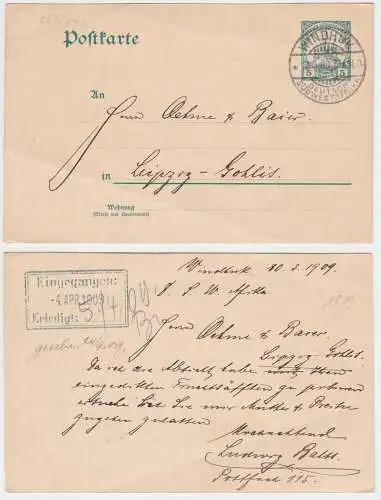 Postkarte
WINDHUK
DEUTSCH-
SÜDWESTAFRIKA
5 5
An
Herrn Oehme & Baier.
in Leipzig-Gohlis.
Wohnung
(Straße und Hausnummer)
Windhuk 10.3.1909.
Eingegangen:
-4 APR 1909
Erledigt: 5/4
D. S. W. Afrika
Herrn Oehme & Baier
Leipzig Gohlis.
Da ich die Absicht habe
eingedickten Fruchtsäften zu
ersuche Sie mir Muster & Preise
zugehen zu lassen
Hochachtend
Ludwig
Postfach 115.